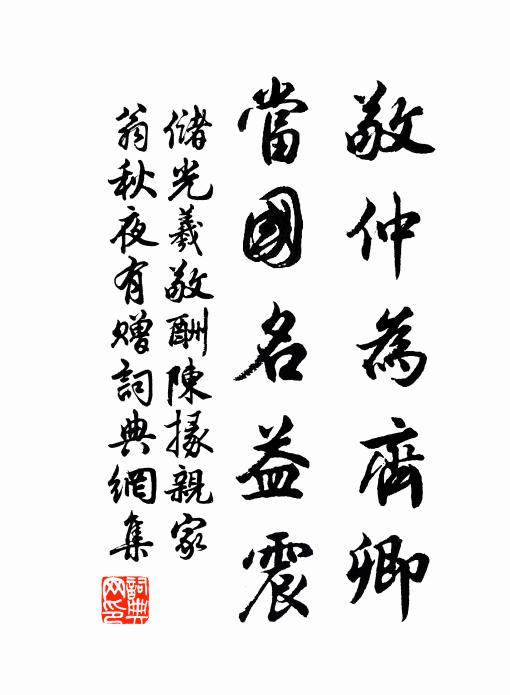 敬仲為齊卿
當國名益震
儲光羲敬酬陳掾親家
翁秋夜有贈詞典網集
詞典網印